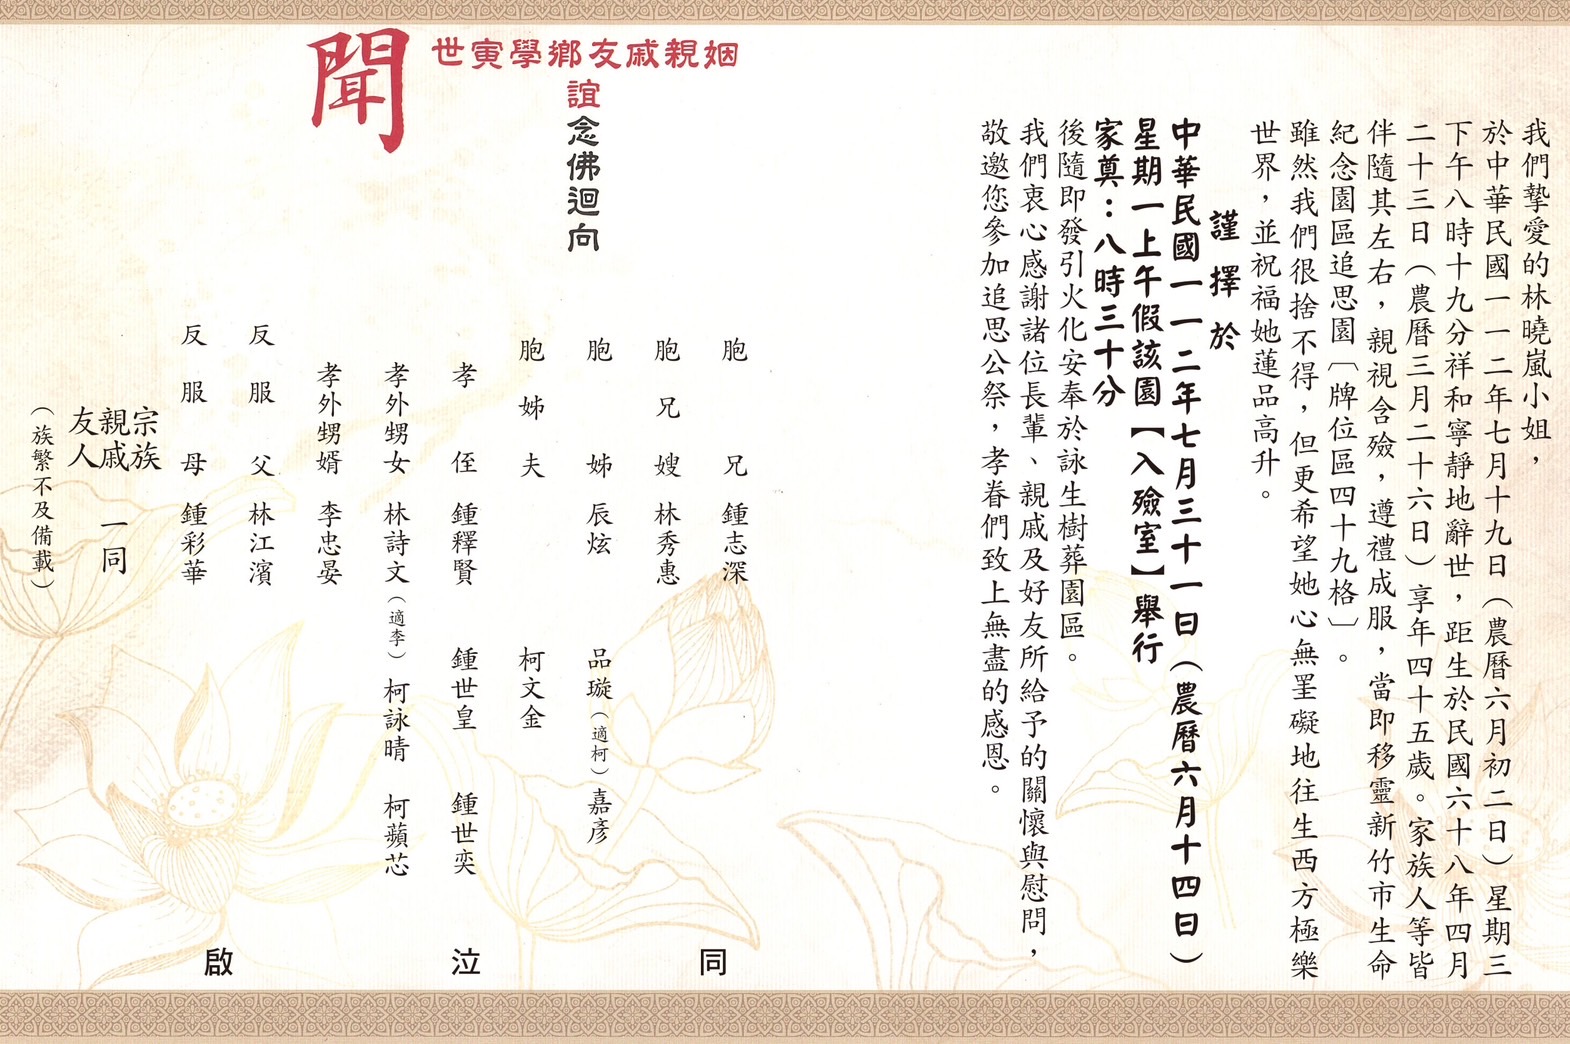 我們摯愛的林曉嵐小姐，
於中華民國一一二年七月十九日（農曆六月初二日）星期三
下午八時十九分祥和寧靜地辭世，距生於民國六十八年四月
二十三日（農曆三月二十六日）享年四十五歲。家族人等皆
伴隨其左右，親視含殮，遵禮成服，當即移靈新竹市生命
紀念園區追思園〔牌位區四十九格〕。
雖然我們很捨不得，但更希望她心無罣礙地往生西方極樂
世界，並祝福她蓮品高升。
謹擇於
中華民國一一二年七月三十一日（農曆六月十四日）
星期一上午假該園【入殮室】舉行
家奠：八時三十分
後隨即發引火化安奉於詠生樹葬園區。
我們衷心感謝諸位長輩、親戚及好友所給予的關懷與慰問，
敬邀您參加追思公祭，孝眷們致上無盡的感恩。
姻親戚友鄉學寅世
誼念佛迴向
聞
胞兄 鍾志深
胞兄嫂 林秀惠
胞姊 辰炫 品璇（適柯）嘉彥
胞姊夫 柯文金
孝侄 鍾釋賢 鍾世皇 鍾世奕
孝外甥女 林詩文（適李）柯詠晴 柯蘋芯
孝外甥婿 李忠晏
反服父 林江濱
反服母 鍾彩華
宗族
親戚 一同
友人
（族繁不及備載）
同 泣 啟